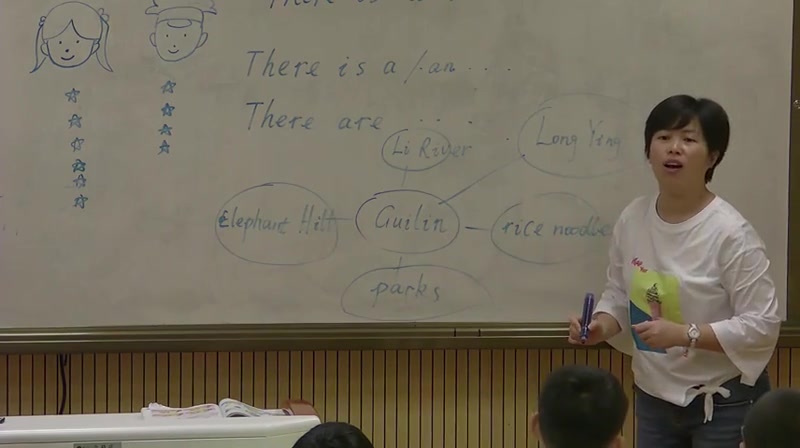 There is a
There is a / an . . .
There are . . . .
Li River
Long Ying
Elephant Hill
Guilin
rice noodles
parks